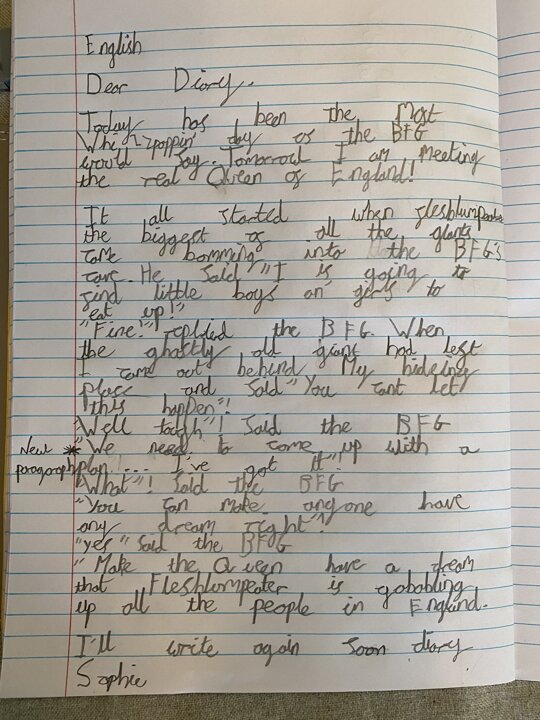 English
Dear Diary.
Today has been the Most
Whizzpoppin' day as the BFG
would say. Tomorrow I am meeting
the real Queen of England!
It all started when fleshlumpeater
the biggest of all the giants
came bomming into the BFG's
cave. He said "I is going to
find little boys an' girls to
eat up!"
"Fine!" replied the BFG. When
the ghastly old giant had left
I came out behind My hideing
place and said "You cant let
this happen"!
Well tough"! Said the BFG
New * "We need to come up with a
paragraph plan"... I've got it"!
"What"! said the BFG
"You can make anyone have
any dream right"?
"yes" said the BFG
"Make the Queen have a dream
that Fleshlumpeater is gobabling
up all the people in England.
I'll write again soon diary
Sophie